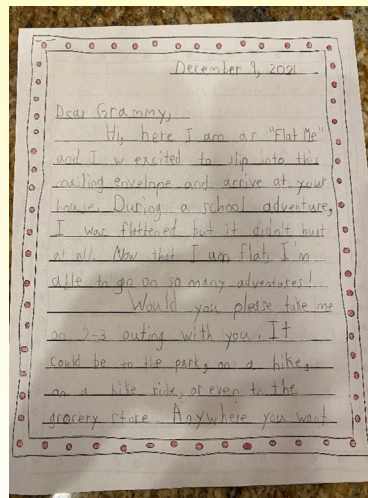 December 9, 2021
Dear Grammy,
Hi, here I am as "Flat Me"
and I w excited to slip into this
mailing envelope and arrive at your
house. During a school adventure,
I was flattened but it didn't hurt
at all. Now that I am flat, I'm
able to go on so many adventures!
Would you please take me
on 2-3 outing with you. It
could be to the park, on a hike,
on a bike ride, or even to the
grocery store. Anywhere you want